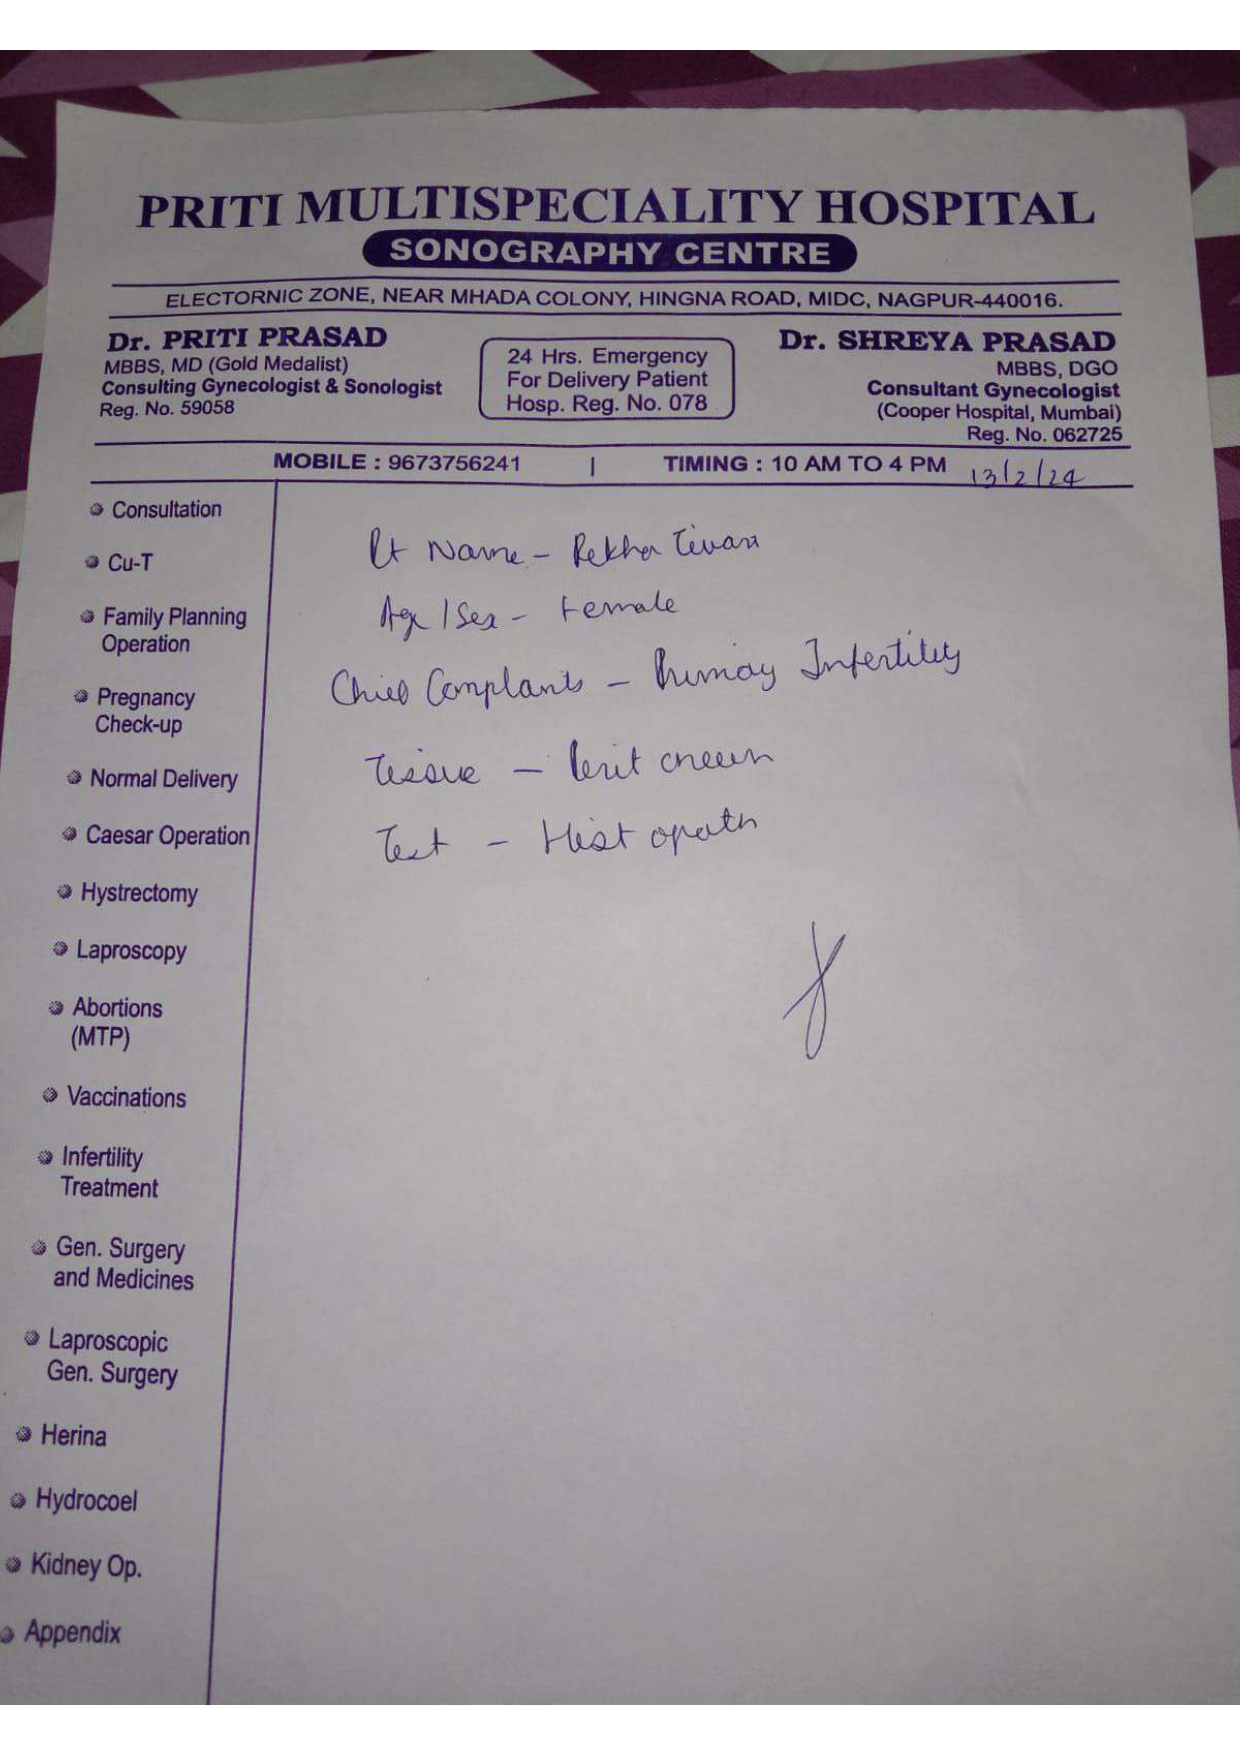 PRITI MULTISPECIALITY HOSPITAL
SONOGRAPHY CENTRE
ELECTORNIC ZONE, NEAR MHADA COLONY, HINGNA ROAD, MIDC, NAGPUR-440016.
Dr. PRITI PRASAD
MBBS, MD (Gold Medalist)
Consulting Gynecologist & Sonologist
Reg. No. 59058
24 Hrs. Emergency
For Delivery Patient
Hosp. Reg. No. 078
Dr. SHREYA PRASAD
MBBS, DGO
Consultant Gynecologist
(Cooper Hospital, Mumbai)
Reg. No. 062725
MOBILE : 9673756241 | TIMING : 10 AM TO 4 PM 13/2/24
Consultation
Cu-T
Family Planning
Operation
Pregnancy
Check-up
Normal Delivery
Caesar Operation
Hystrectomy
Laproscopy
Abortions
(MTP)
Vaccinations
Infertility
Treatment
Gen. Surgery
and Medicines
Laproscopic
Gen. Surgery
Herina
Hydrocoel
Kidney Op.
Appendix
Pt Name - Rekha Tivari
Age / Sex - Female
Chief Complants - Primay Infertility
Tissue -
Test - Histopath